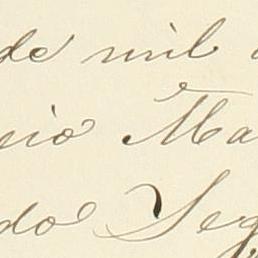 de mil
cio Ma
do Seg